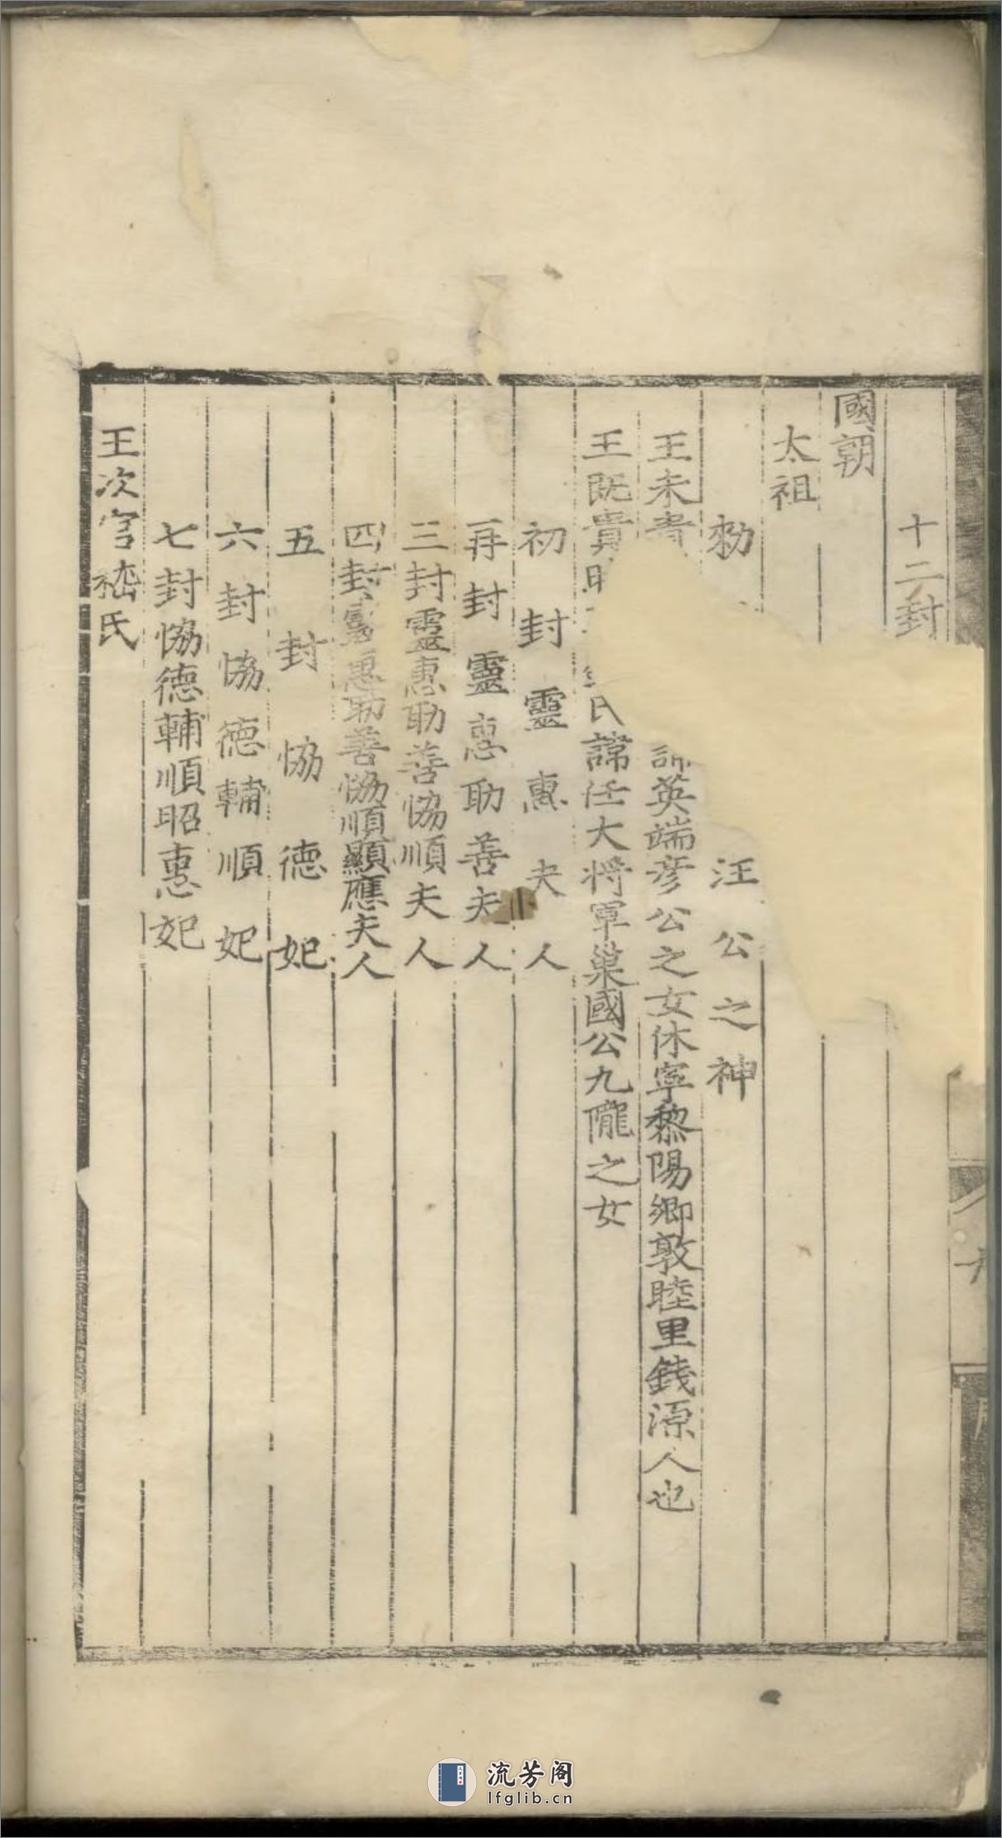 十二封
國朝
太祖
勑 汪公之神
王未 英端彦公之女休寧黎陽鄉敦睦里錢源人也
王既貴 氏諱任大將軍巢國公九隴之女
初封靈惠夫人
再封靈惠助善夫人
三封靈惠助善協順夫人
四封靈惠助善協順顯應夫人
五封協德妃
六封協德輔順妃
七封協德輔順昭惠妃
王次宫嵇氏
流芳阁
lfglib.cn